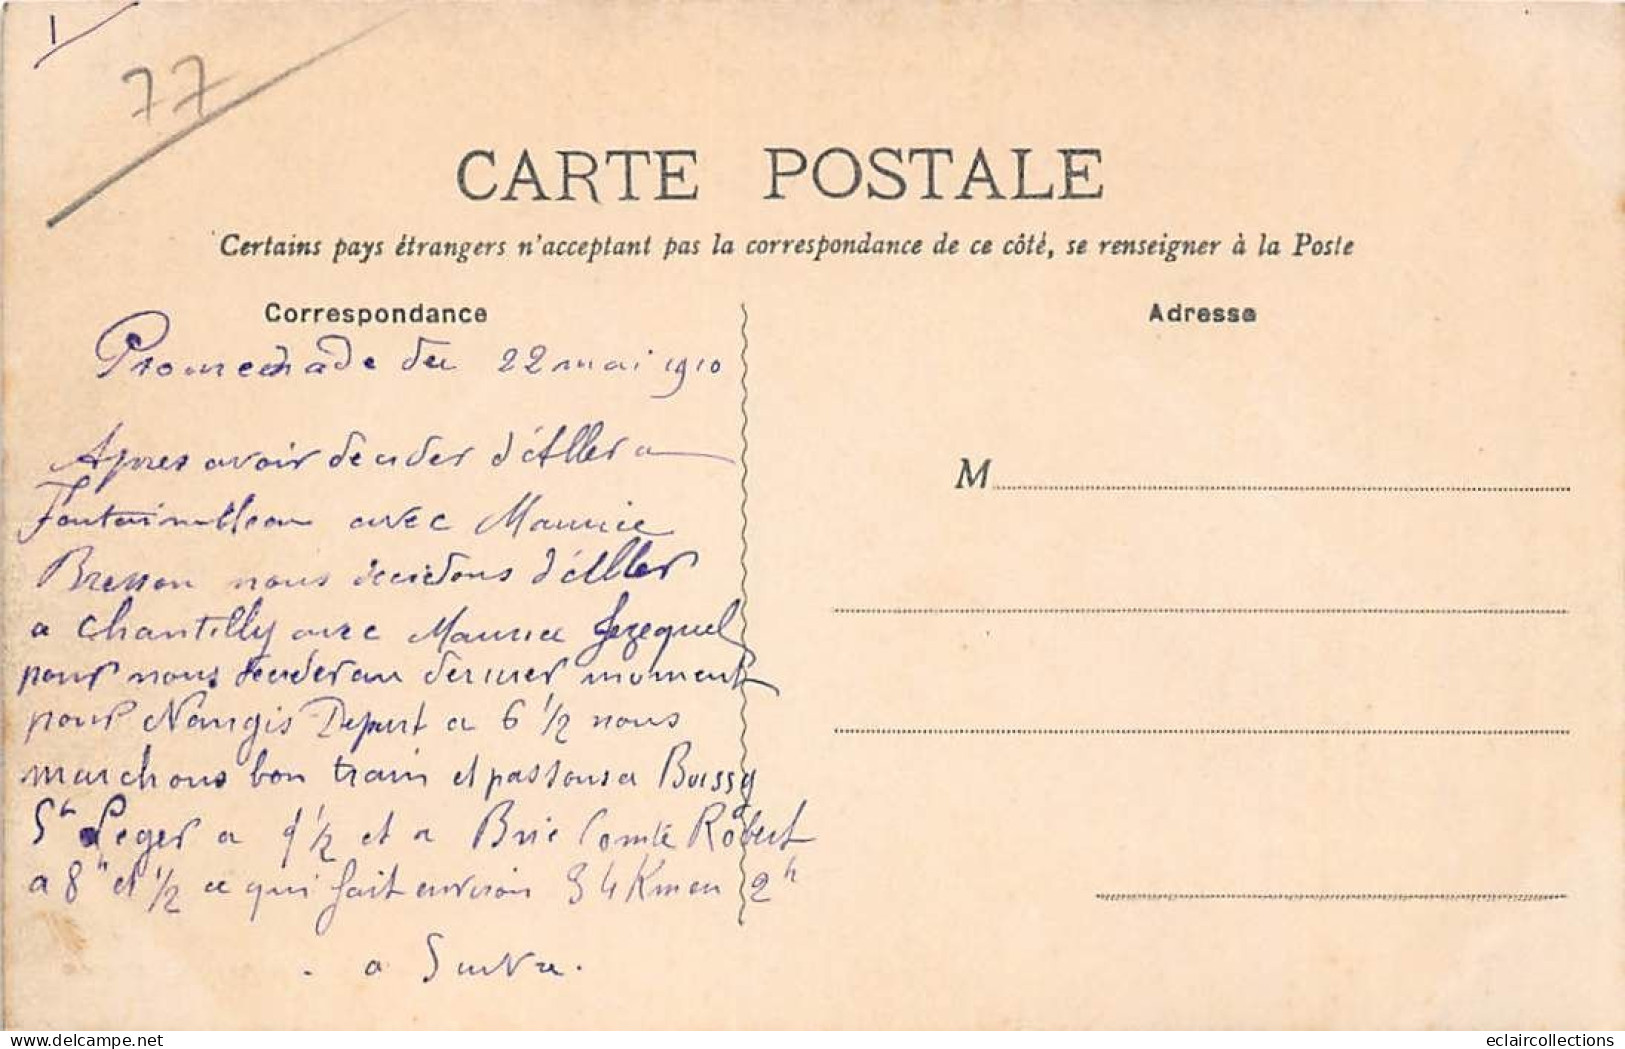 1
77
CARTE POSTALE
Certains pays étrangers n'acceptant pas la correspondance de ce côté, se renseigner à la Poste
Correspondance
Promenade du 22 mai 1910
Apres avoir decider d'Aller a
Fontainebleau avec Maurice
Bresson nous decidons d'Aller
a Chantilly avec Maurice Jezequel
pour nous decider au dernier moment
pour Nangis Depart a 6 1/2 nous
marchons bon train et passons a Boissy
St Leger a 7 1/2 et a Brie Comte Robert
a 8h et 1/2 ce qui fait environ 34 Km en 2h
. a Suivre.
Adresse
M
delcampe.net
eclaircollections